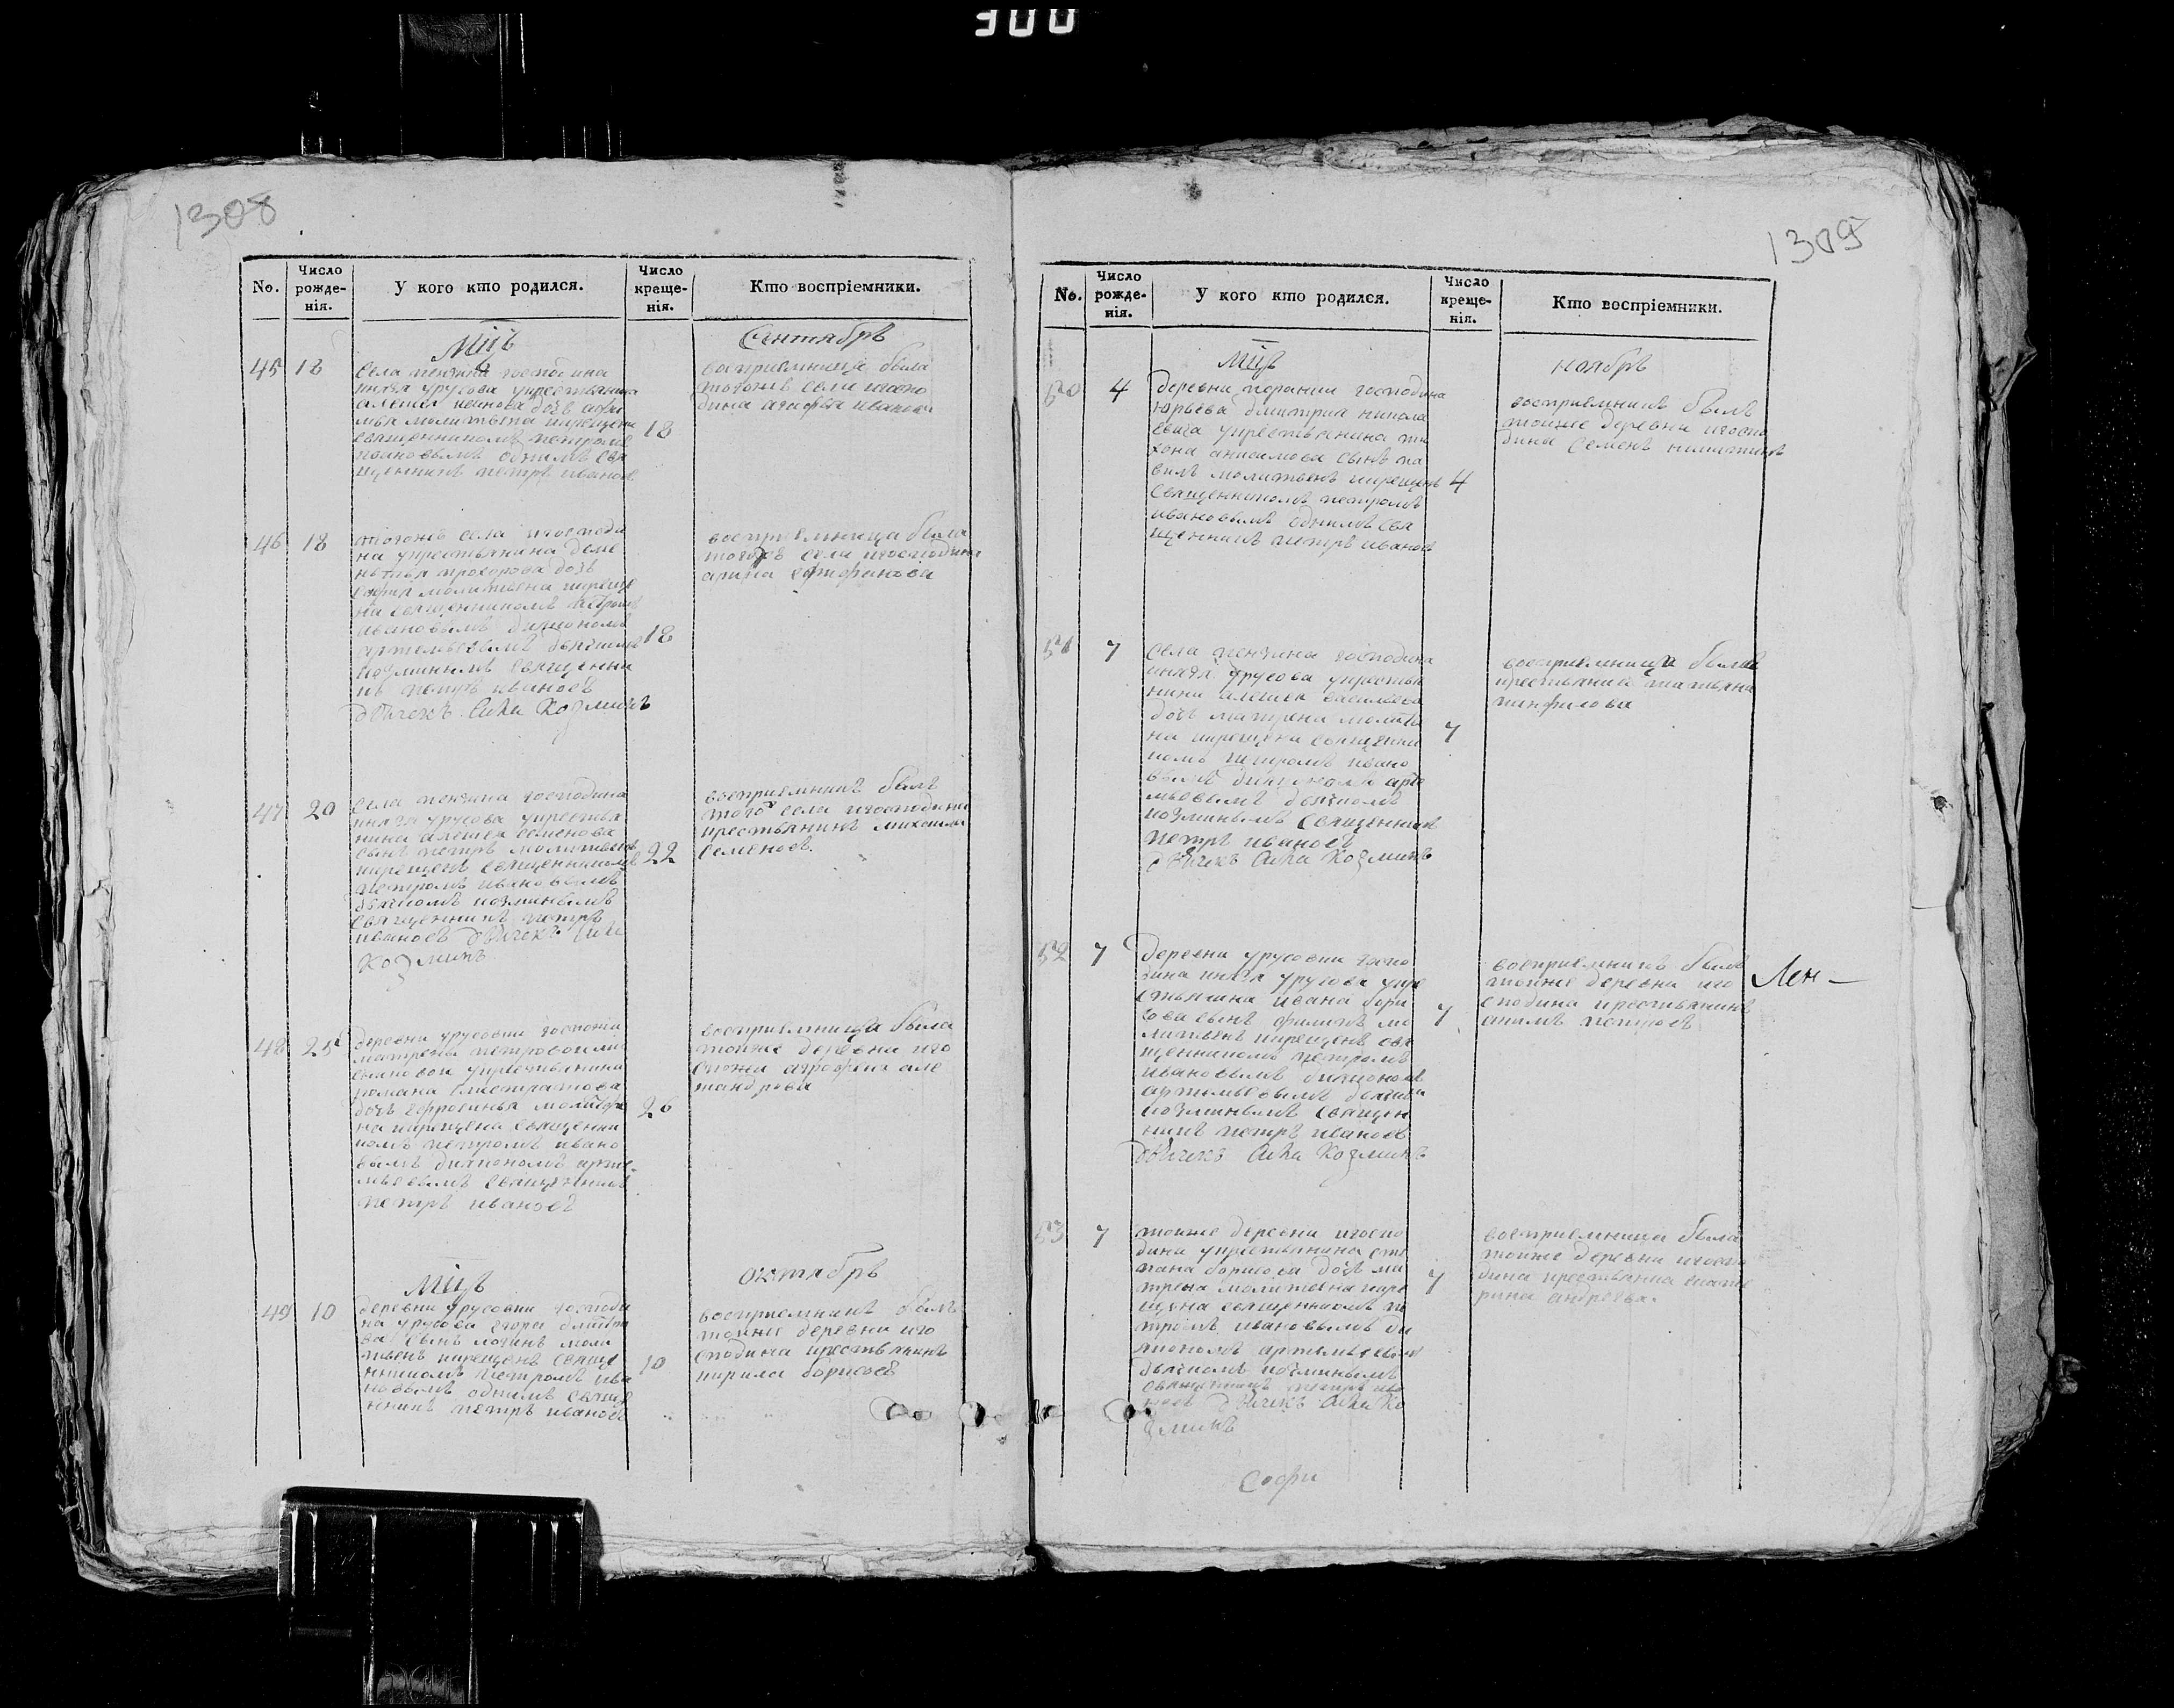 300
1308
No.
Число рожде-нія.
У кого кто родился.
Число креще-нія.
Кто воспріемники.
Мцъ
Сентябрь
45 18
села
господина
князя урусова укрестьянина
алексея иванова дочь
молитвена икрещена
священникомъ петромъ
ивановымъ однимъ свя
щенникъ петръ ивановъ
18
восприемница была
тогожъ села игоспо
дина агафья иванова
46 18
тогожъ села игосподи
на укрестьянина деме
нтья прохорова дочь
софия молитвена икреще
на священникомъ петромъ
ивановымъ дияпономъ
артемьевымъ дьячкомъ
козминымъ священни
къ петръ ивановъ
дьячекъ Сила Козминъ
18
восприемница была
тогожъ села игосподина
арина
47 20
села
господина
князя урусова укрестья
нина алексея семенова
сынъ петръ молитвенъ
икрещенъ священникомъ
петромъ ивановымъ
дьячкомъ козминымъ
священникъ петръ
ивановъ дьячекъ Сила
Козминъ
22
восприемникъ былъ
тогожъ села игосподина
крестьянинъ михаила
семеновъ.
48 25
деревни урусовки госпожи
матрены петровой
укрестьянина
романа
дочь ефросинья молитве
на икрещена священни
комъ петромъ ивано
вымъ дияпономъ арте-
мьевымъ священникъ
петръ ивановъ
26
восприемница была
тойже деревни иго
спожи
але
ксандрова
Мцъ
октябрь
49 10
деревни урусовки господи
на урусова егора дмитри
ва сынъ логинъ моли
твенъ икрещенъ свяще
нникомъ петромъ ива
новымъ однимъ свяще
нникъ петръ ивановъ
10
восприемникъ былъ
тойже деревни иго
сподина крестьянинъ
кирила борисовъ
1309
No.
Число рожде-нія.
У кого кто родился.
Число креще-нія.
Кто воспріемники.
Мцъ
ноябрь
50 4
деревни
господина
Юрьева дмитрия никола
евича укрестьянина ти
хона анисимова сынъ па
велъ молитвенъ икрещенъ
священникомъ петромъ
ивановымъ однимъ свя
щенникъ петръ ивановъ
4
восприемникъ былъ
тойже деревни игоспо
дина семенъ никитинъ
51 7
села
господина
князя урусова укрестья
нина алексея васильева
дочь матрена молитве
на икрещена священни
комъ петромъ ивано
вымъ дияпономъ арте
мьевымъ дьячкомъ
козминымъ священникъ
петръ ивановъ
дьячекъ Сила Козминъ
7
восприемница была
крестьянка татьяна
панфилова
52 7
деревни урусовки госпо
дина князя урусова укре
стьянина ивана бори
сова сынъ филипъ мо
литвенъ икрещенъ свя
щенникомъ петромъ
ивановымъ дияпономъ
артемьевымъ дьячком
козминымъ священ
никъ петръ ивановъ
дьячекъ Сила Козминъ
7
восприемникъ былъ
тойже деревни иго
сподина крестьянинъ
петровъ
Лен —
53 7
тойже деревни игоспо
дина укрестьянина сте
пана борисова дочь ма
трена молитвена икре
щена священникомъ пе
тромъ ивановымъ ди
япономъ артемьевымъ
дьячкомъ козминымъ
священникъ петръ ива
новъ дьячекъ Сила Ко
зминъ
7
восприемница была
тойже деревни игоспо
дина крестьянка екате
рина андреева.
Софи